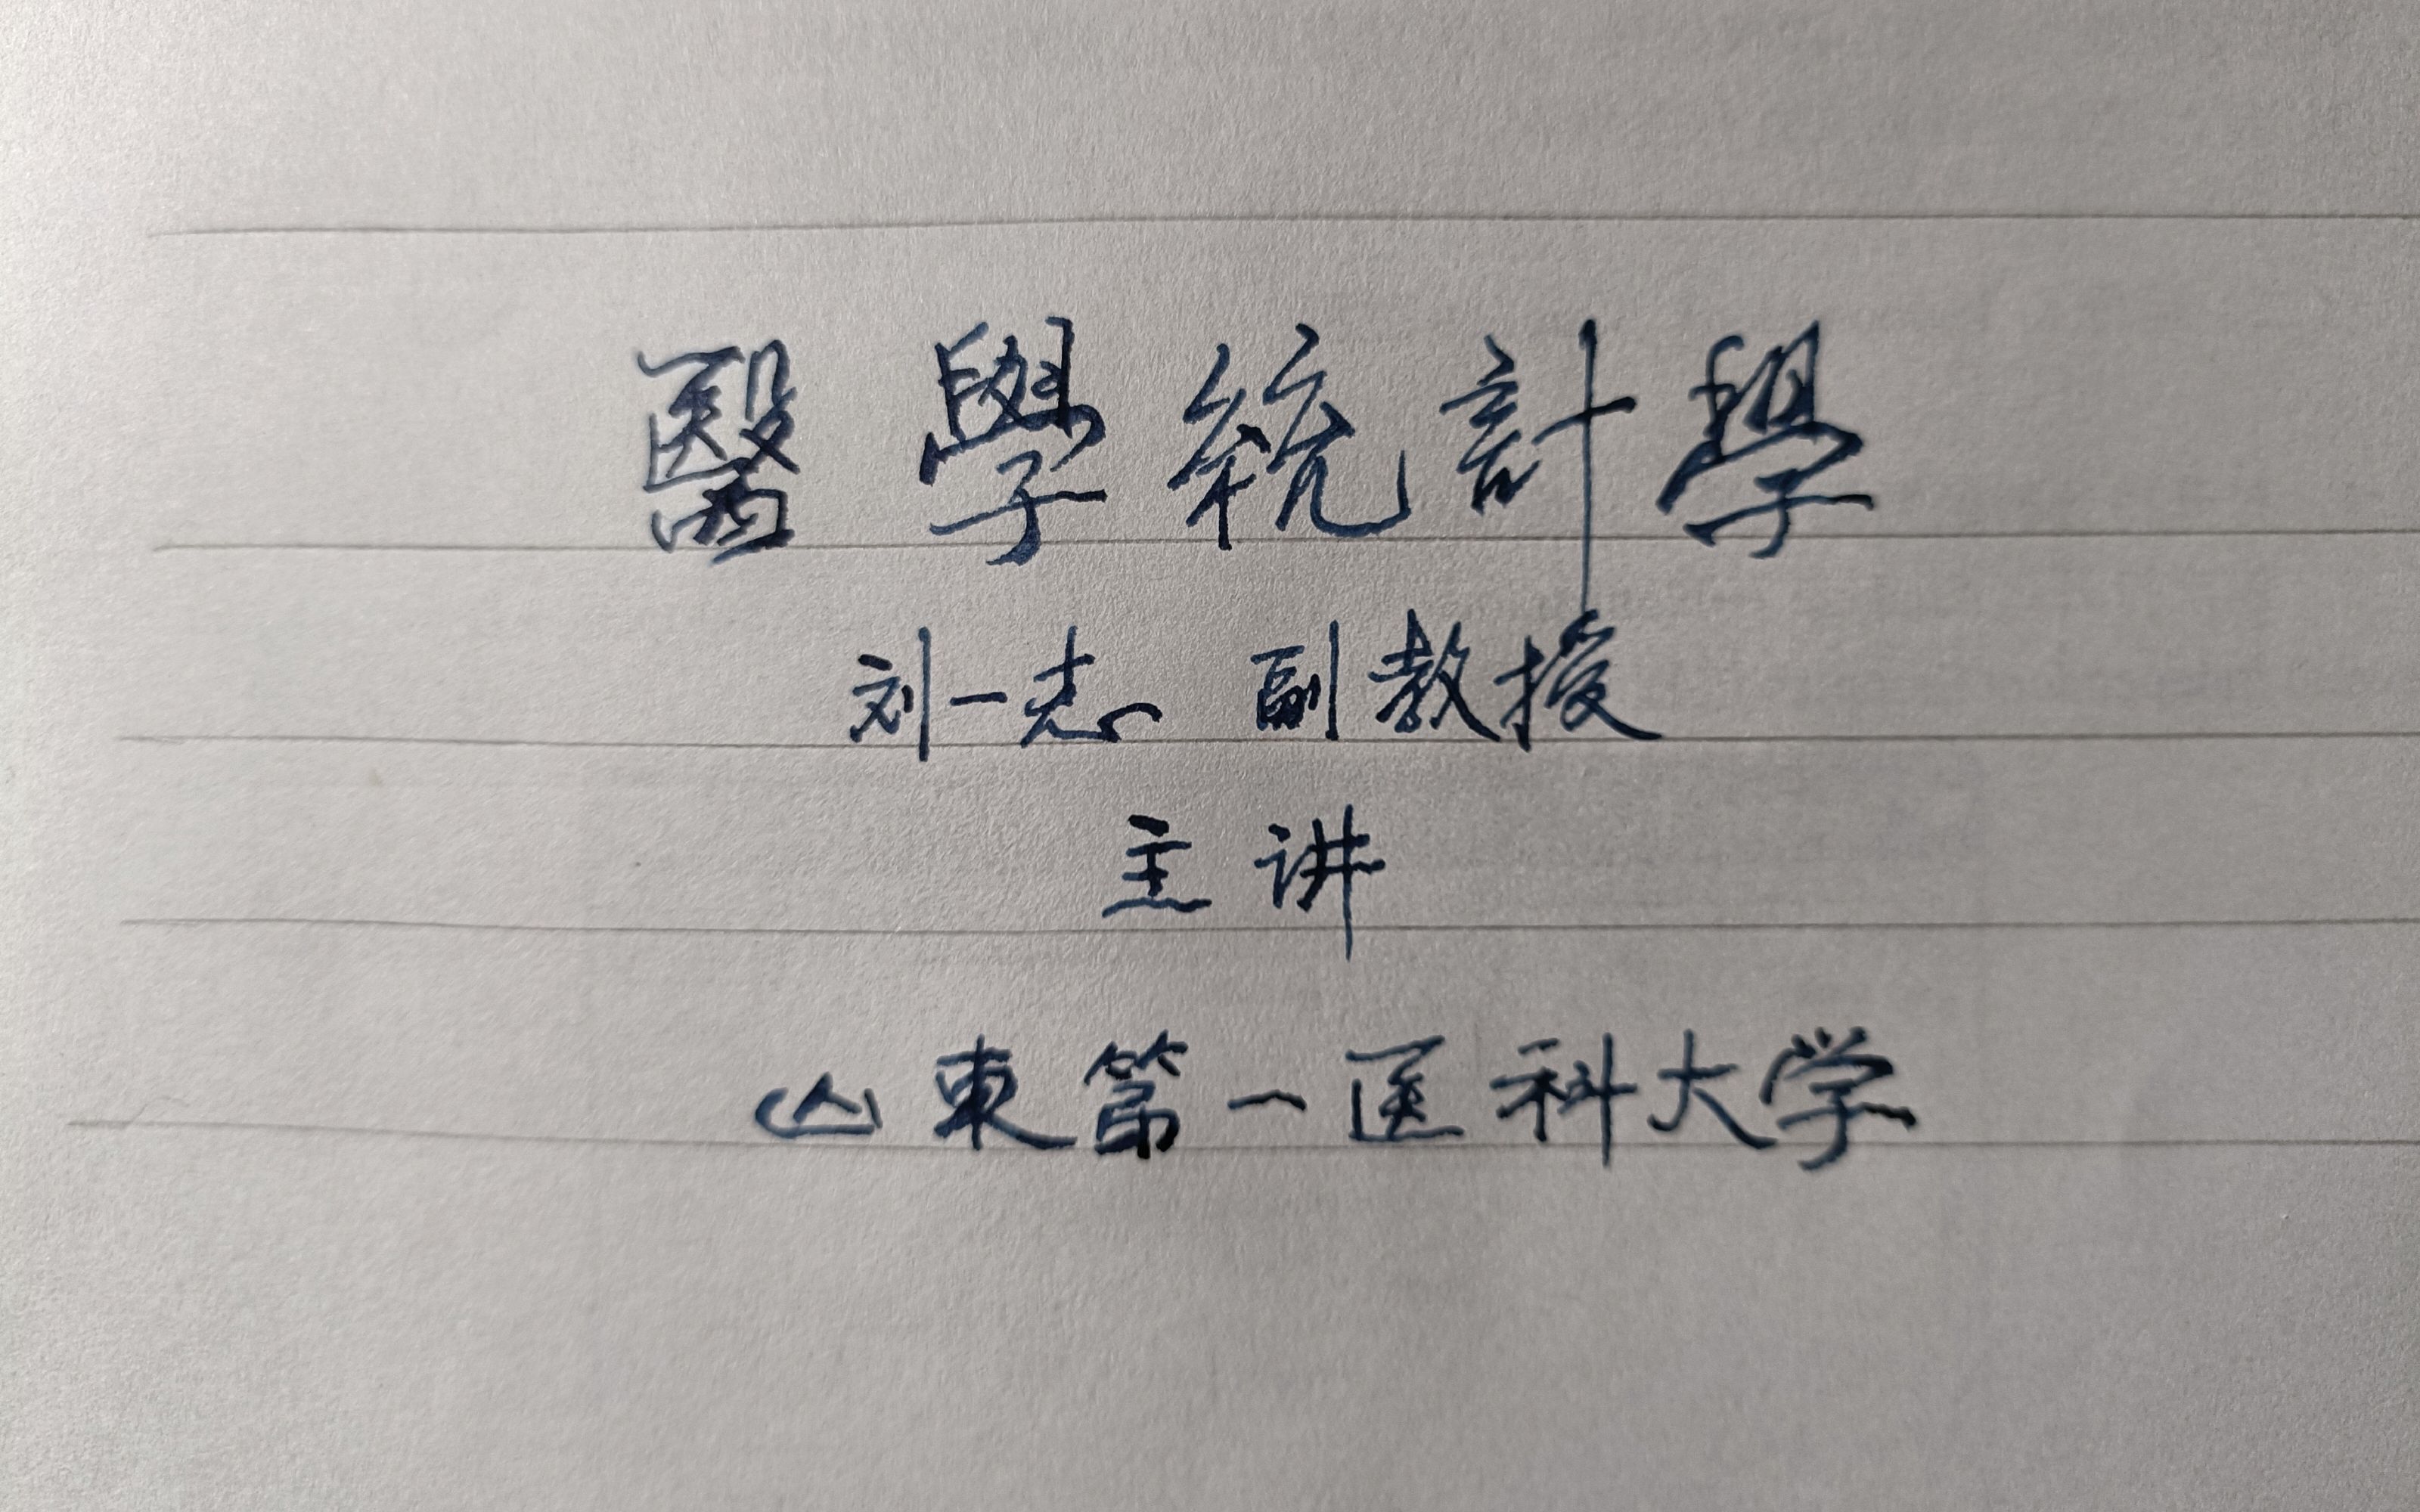 醫學統計學
刘一志 副教授
主讲
山東第一医科大学